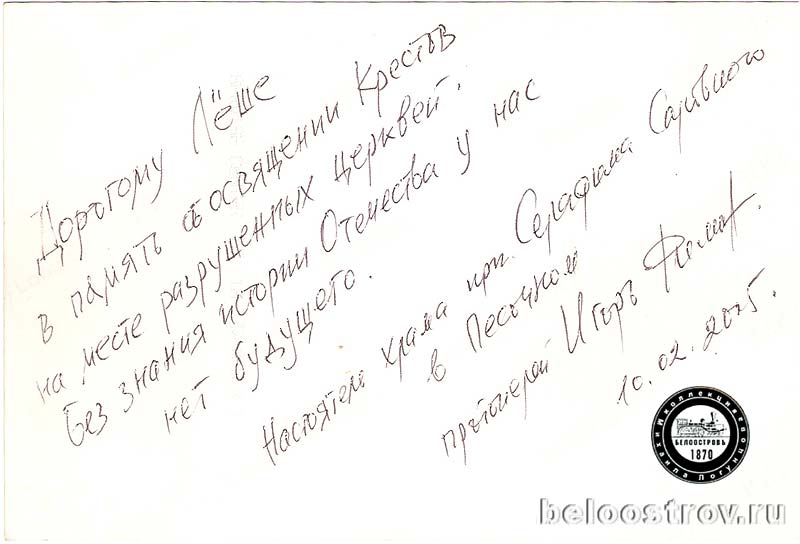 Дорогому Лёше
в память об освящении Крестов
на месте разрушенных церквей.
Без знания истории Отечества у нас
нет будущего.
Настоятель храма прп. Серафима Саровского
в Песочном
протоиерей Игорь Филин.
10.02.2005.
Михаила Логунцова
коллекция
БЕЛООСТРОВЪ
1870
beloostrov.ru